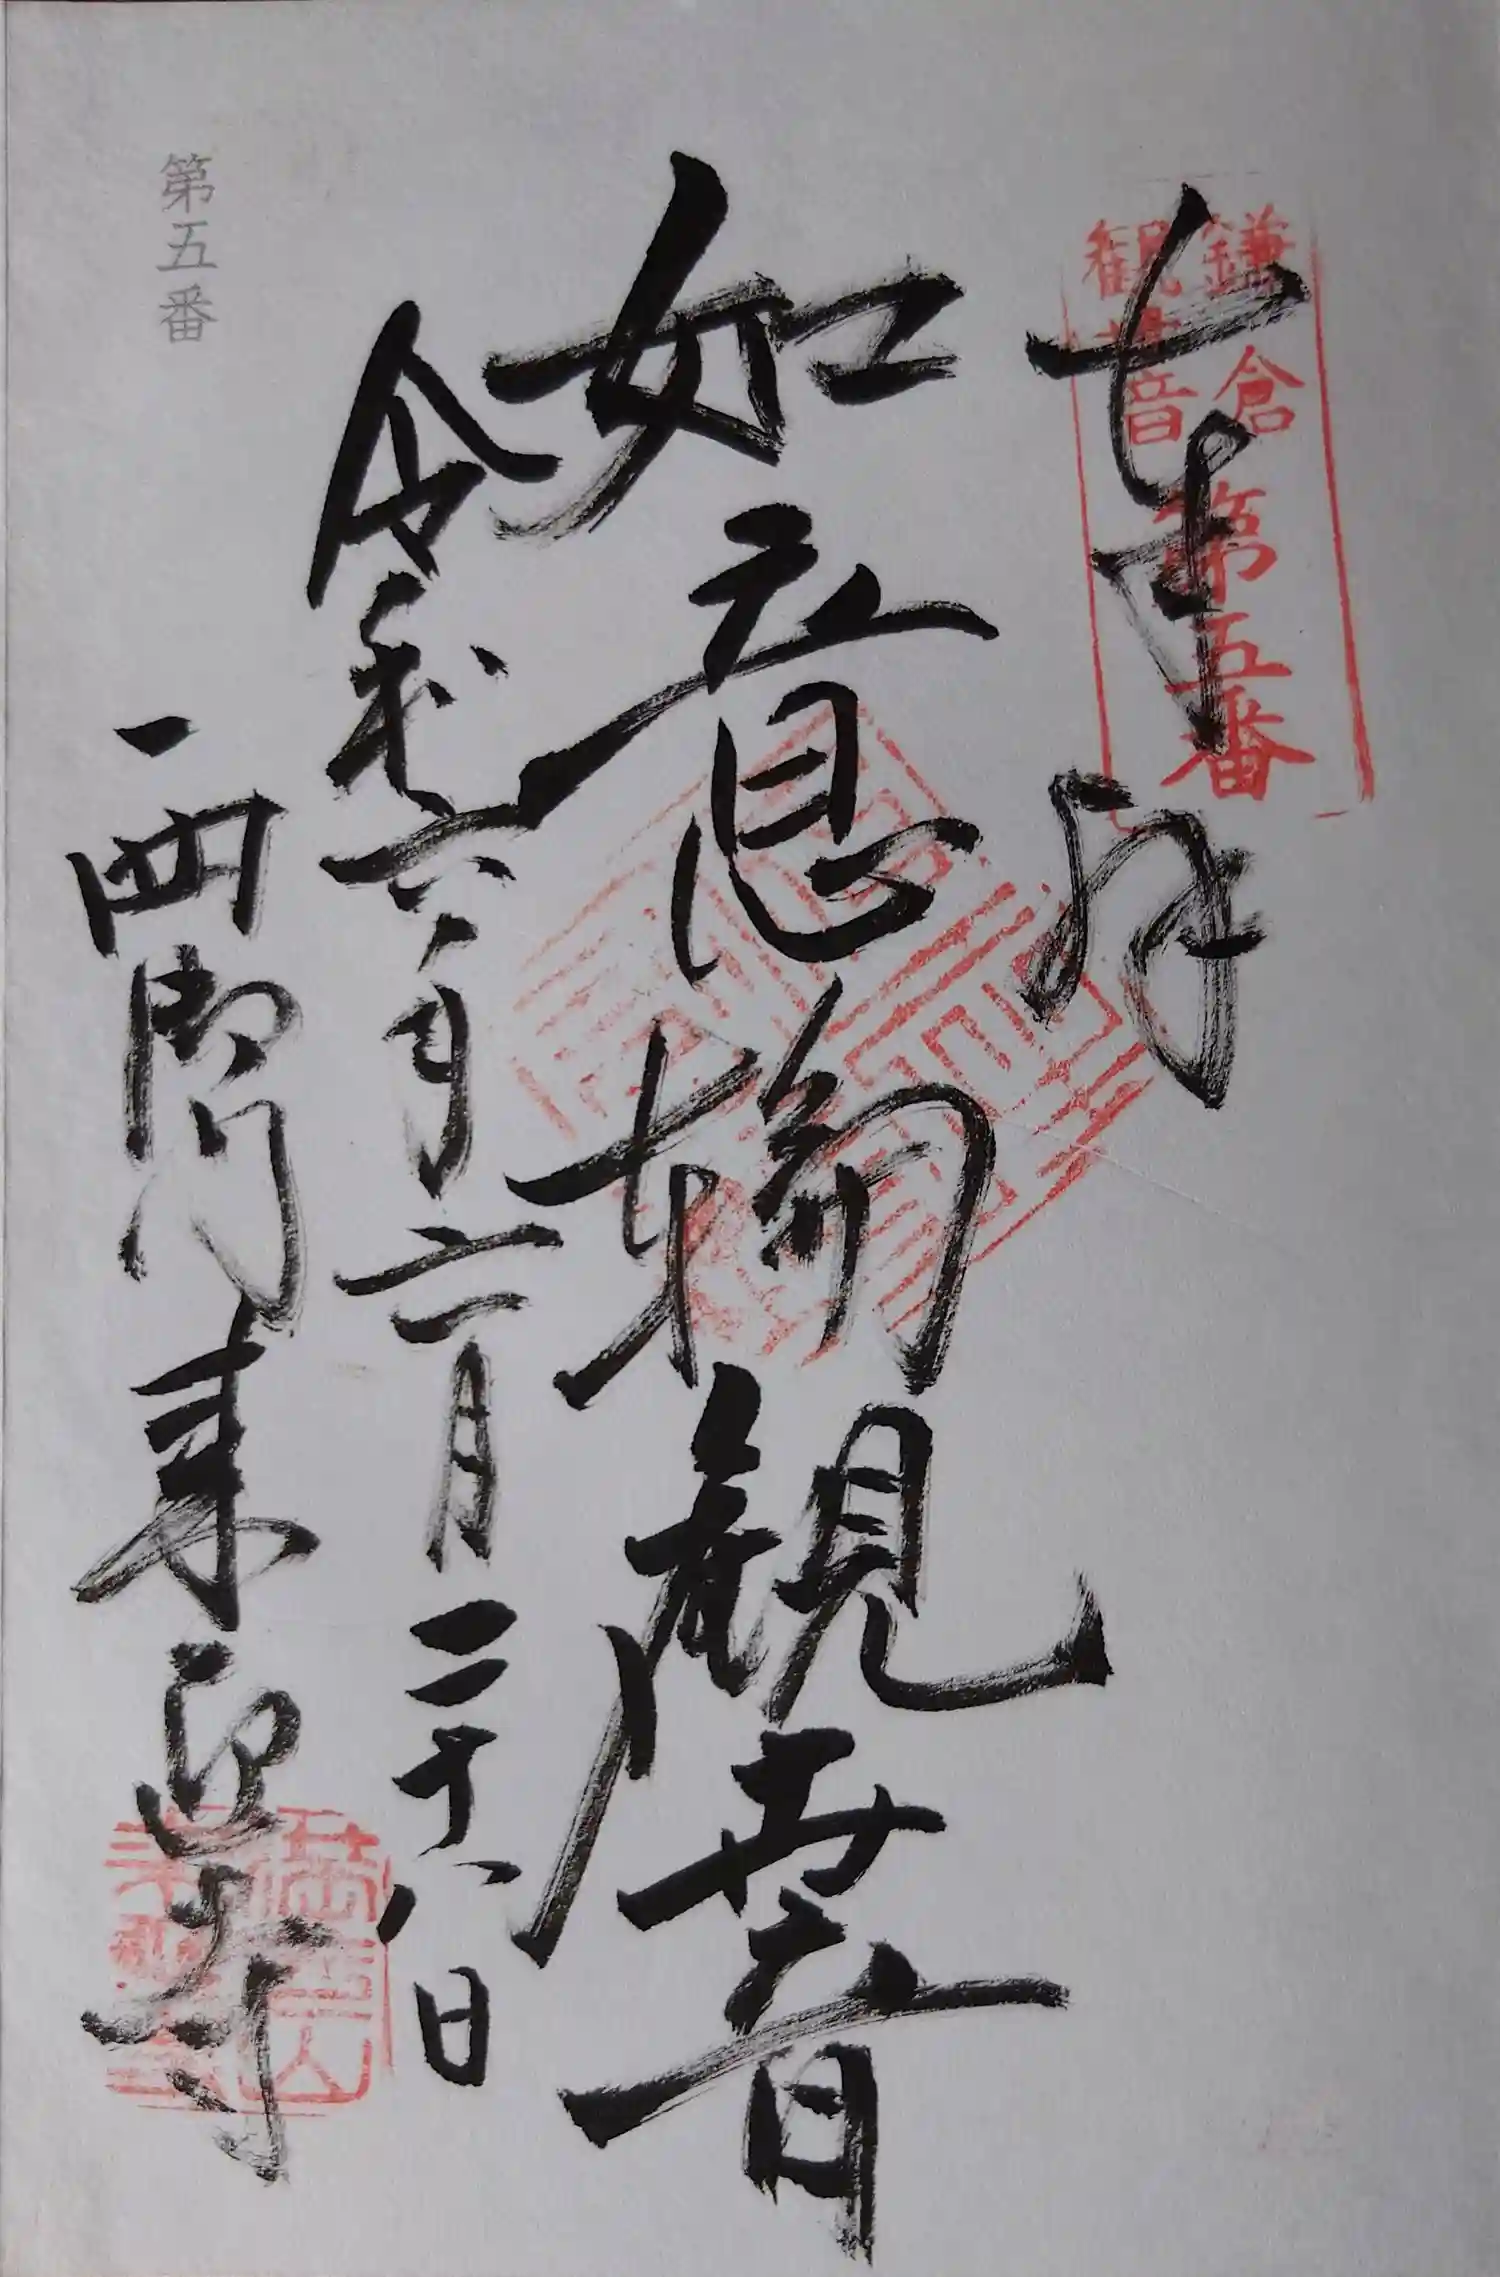 奉拝
鎌倉
観世音
第五番
如意輪観世音
令和六年六月二十八日
西御門来迎寺
第五番